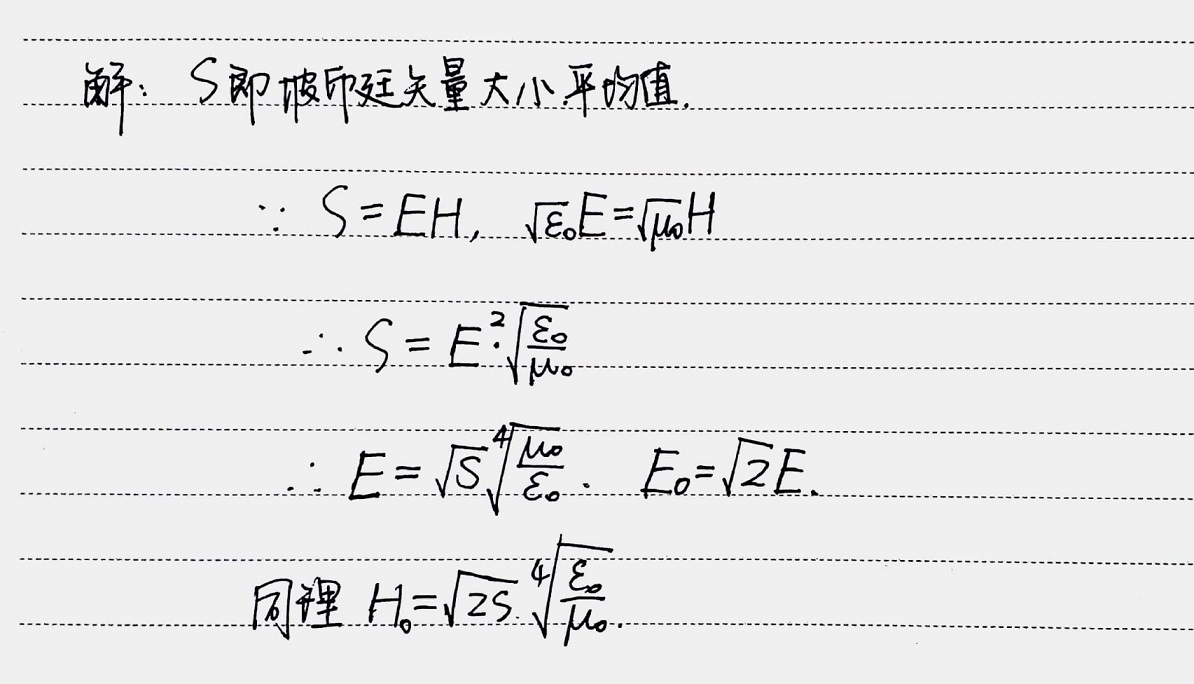 解：S即坡印廷矢量大小平均值.
∵ S=EH, √ε₀E=√μ₀H
∴ S=E²·√(ε₀/μ₀)
∴ E=√S ∜(μ₀/ε₀). E₀=√2E.
同理 H₀=√2S·∜(ε₀/μ₀).